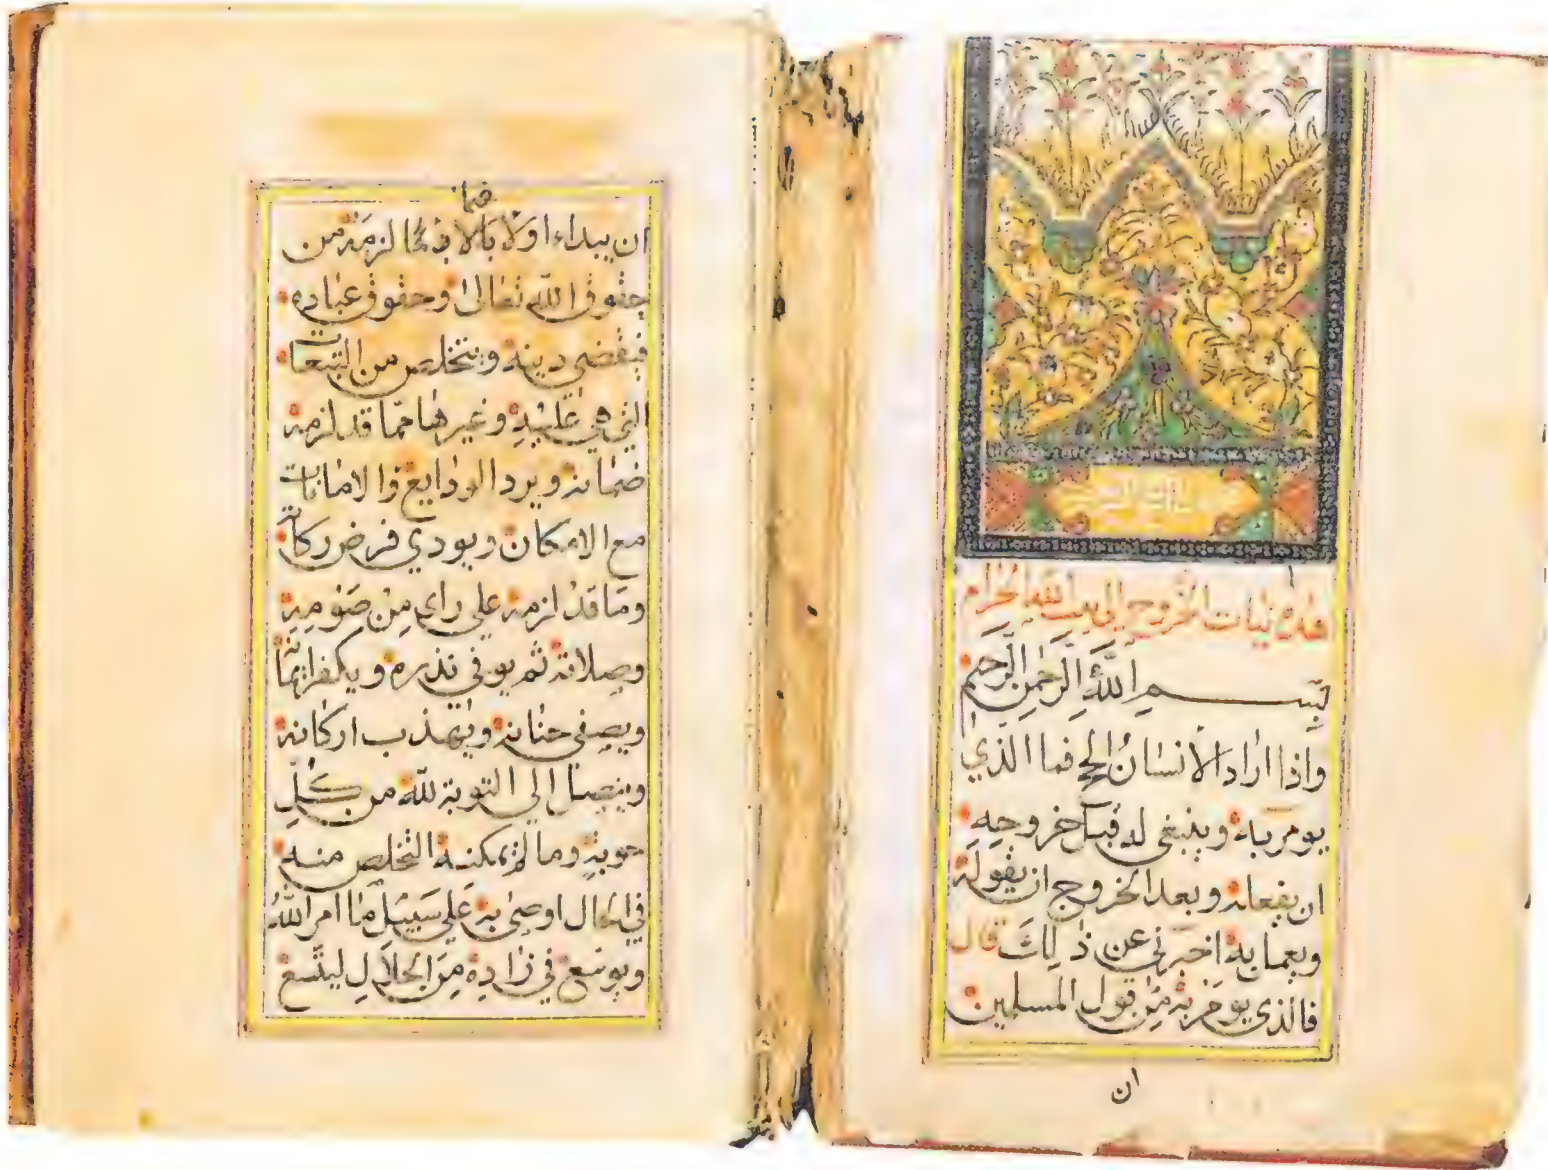 هذه نيات الخروج الى بيت الله الحرام
بسم الله الرحمن الرحيم
واذا اراد الانسان الحج فما الذي
يومر به وينبغي له قبل خروجه
ان يفعله وبعد الخروج ان يقوله
ويعمل به اخبرني عن ذلك قال
فالذي يومر به من قول المسلمين
ان
فيما
ان يبداء اولا بالا لزمه من
حقوق الله تعالى وحقوق عباده
فيقضي دينه ويتخلص من التبعات
التي هي عليه وغيرها مما قد لزمه
ضمانه ويرد الودايع والامانات
مع الامكان ويودي فرض زكاته
وما قد لزمه على راي من صومه
وصلاته ثم يوفي نذره ويكفر ايمانه
ويصفي جنانه ويهذب اركانه
وينصل الي التوبة لله من كل
حوبة وما لم يمكنه التخلص منه
في الحال اوصى به على سبيل ما امر الله
ويوسع في زاده من الحلال ليتسع